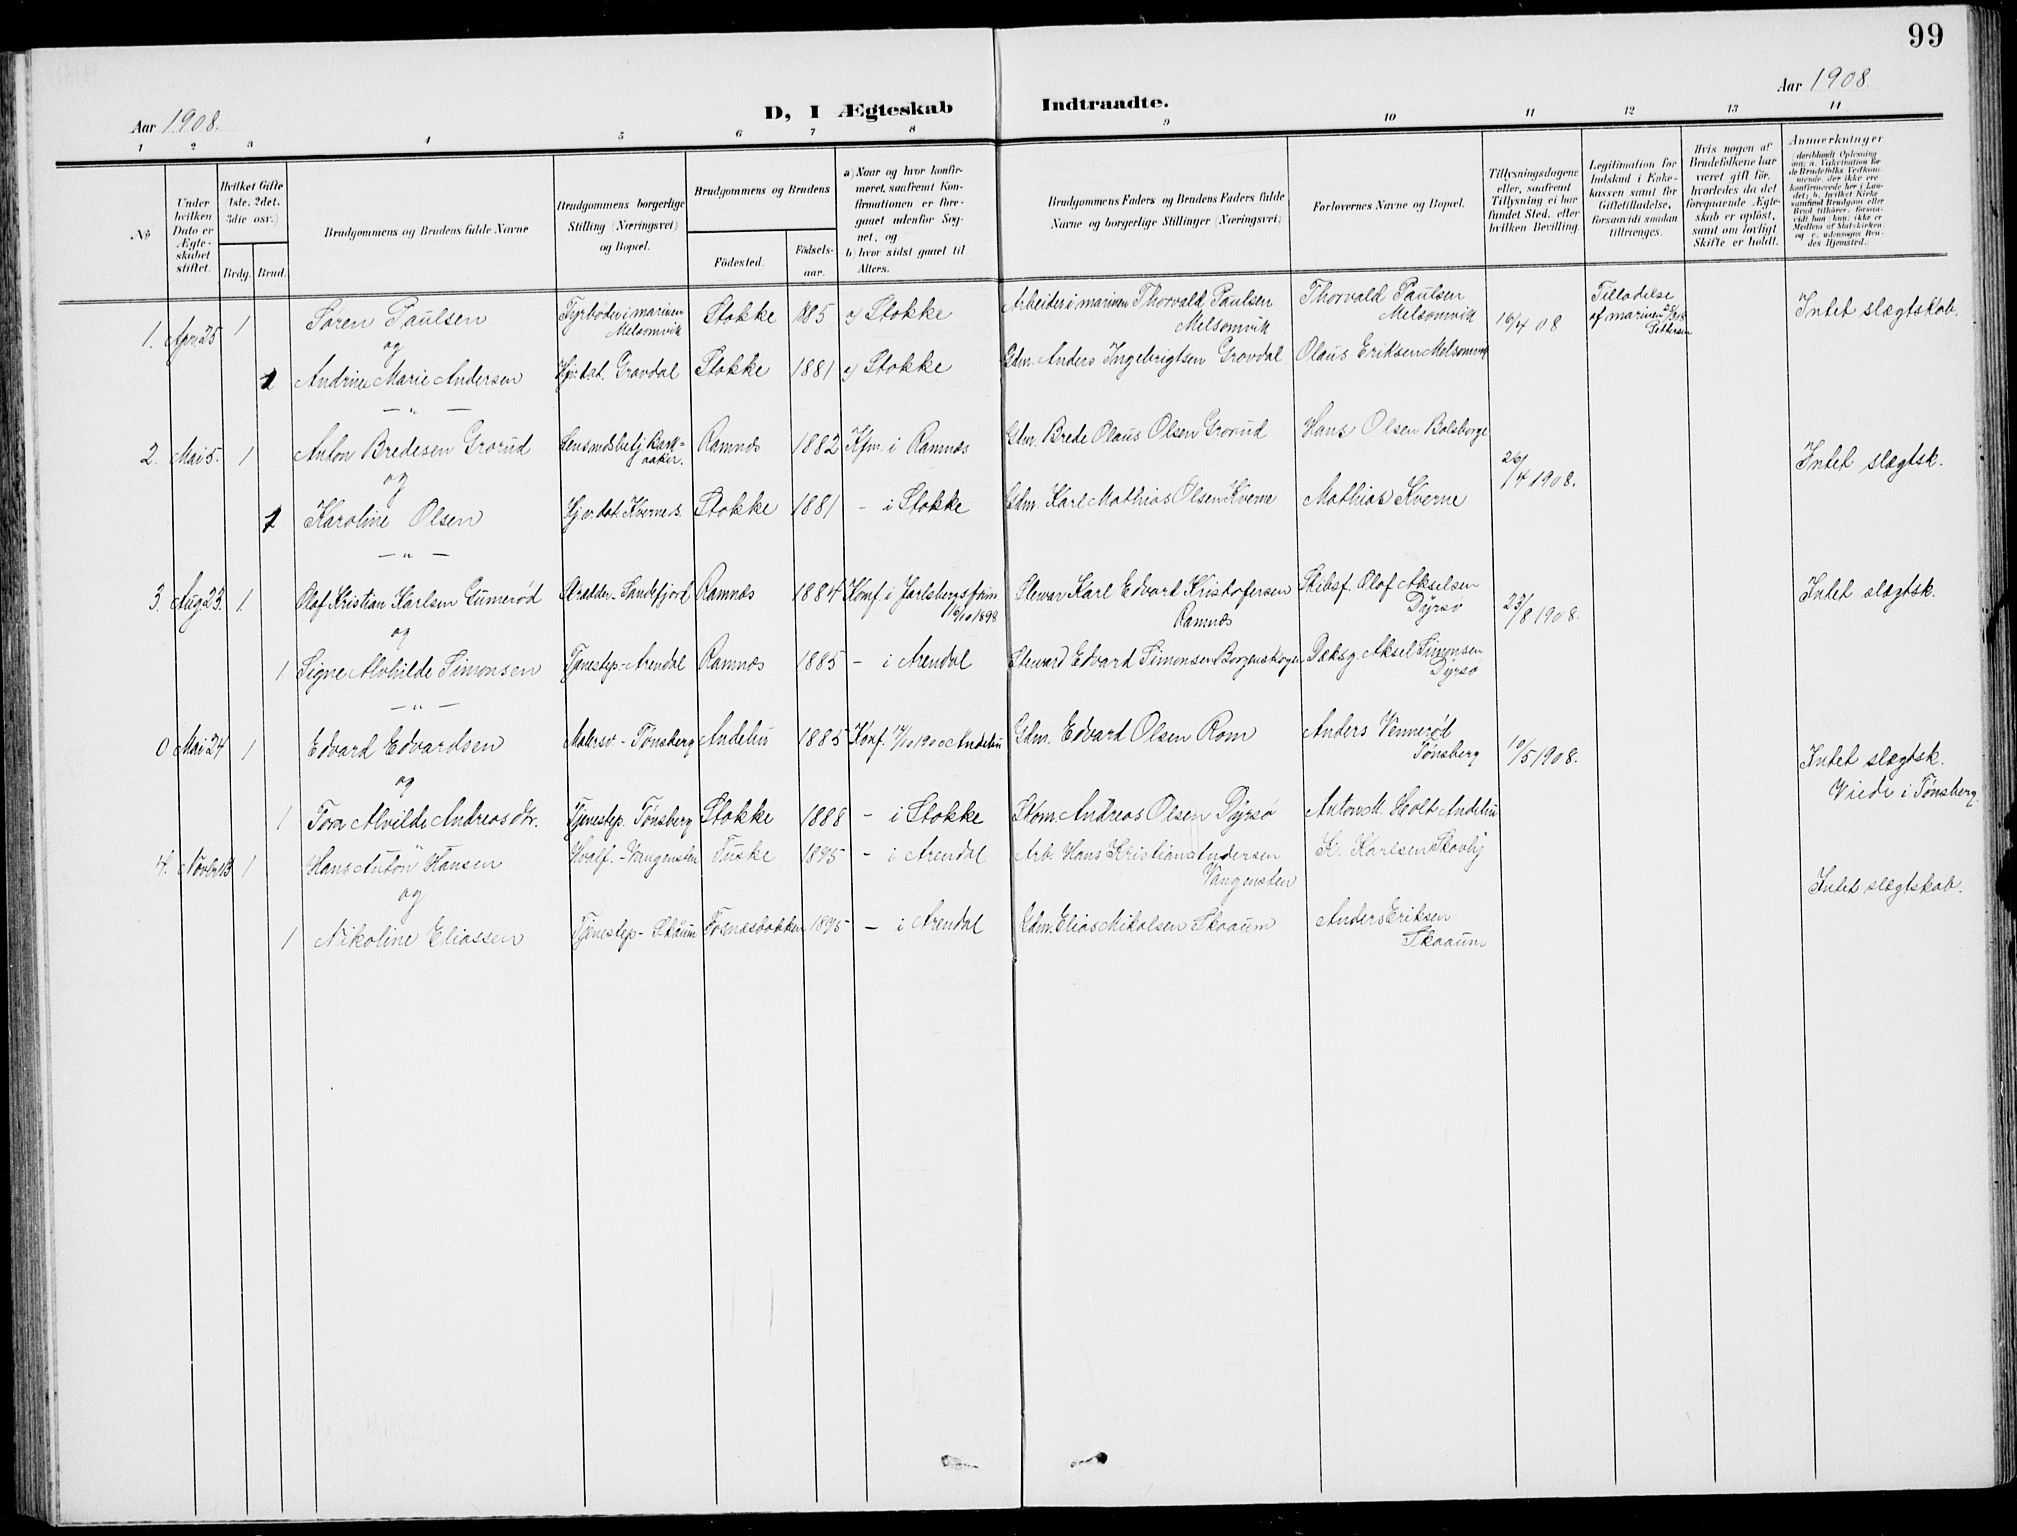 99
Aar 1908.
D, I Ægteskab Indtraadte.
Aar 1908.
1 2 3 4 5 6 7 8 9 10 11 12 13 14
No
Under hvilken Dato er Ægteskabet stiftet.
Hvilket Gifte (1ste, 2det, 3die osv.)
Brdg. Brud.
Brudgommens og Brudens fulde Navne
Brudgommens borgerlige Stilling (Næringsvei) og Bopæl.
Brudgommens og Brudens
Födested.
Födsels-aar.
a) Naar og hvor konfirmeret, saafremt Konfirmationen er foregaaet udenfor Sognet, og
b) hvor sidst gaaet til Alters.
Brudgommens Faders og Brudens Faders fulde Navne og borgerlige Stillinger (Næringsvei)
Forlovernes Navne og Bopæl.
Tillysningsdagene eller, saafremt Tillysning ei har fundet Sted, efter hvilken Bevilling.
Legitimation for Indskud i Enkekassen samt for Giftetilladelse, forsaavidt saadan tiltrænges.
Hvis nogen af Brudefolkene har været gift för, hvorledes da det foregaaende Ægteskab er oplöst, samt om lovligt Skifte er holdt.
Anmærkninger
1. Apr. 25 1 Søren Paulsen Fyrbøder i marinen Melsomvik Stokke 1885 a) Stokke Arbeider i marinen Thorvald Paulsen Melsomvik Thorvald Paulsen Melsomvik 16/4 08 Tilladelse af marinen Pettersen Intet slægtskab.
og
1 Andrine Marie Andersen Hjv. dat. Gravdal Stokke 1881 a) Stokke Gdm. Anders Ingebrigtsen Gravdal Olaus Eriksen Melsomvik
— „ —
2. Mai 5. 1 Anton Bredesen Grorud Lensmdsbetj. Barkaaker. Ramnæs 1882 Kfm. i Ramnæs Gdm. Brede Olaus Olsen Grorud Hans Olsen Bolsborge 26/4 1908. Intet slægtsk.
og
1 Karoline Olsen Hjv. dat. Kverne s. Stokke 1881 - i Stokke Gdm. Karl Mathias Olsen Kverne Mathias Kverne
— „ —
3. Aug 23. 1 Olaf Kristian Karlsen Gumerød Skrædder - Sandefjord Ramnæs 1884 Konf. i Jarlsberg 1898 Stewar Karl Edvard Kristofersen Ramnæs Skibsf. Olof Akselsen Dyrsø 23/8 1908. Intet slægtsk.
og
1 Signe Alvhilde Simonsen Tjenestep. - Arendal Ramnæs 1885 - i Arendal Steward Edvard Simonsen Borgenskogen Dæksg. Aksel Simonsen Dyrsø
— „ —
0 Mai 24 1 Edvard Edvardsen Malersv - Tønsberg Andebu 1885 Konf. 1900 Andebu Gdm. Edvard Olsen Rom Anders Vennerød Tønsberg 10/5 1908. Intet slægtsk. Viede i Tønsberg.
og
1 Tora Alvilde Andreasdtr. Tjenestep. Tønsberg Stokke 1888 - i Stokke Skom. Andreas Olsen Dyrsø Anton M. Holt Andebu
4. Novbr 13 1 Hans Anton Hansen Hvalf. - Vangensten 1895 - i Arendal Arb. Hans Kristian Andersen Vangensten K. Karlsen Skovly Intet slægtskab.
og
1 Nikoline Eliassen Tjenestep - Skaum Fosnæsbakken 1895 - i Arendal Gdm. Elias Nikolsen Skaaum Anders Eriksen Skaaum